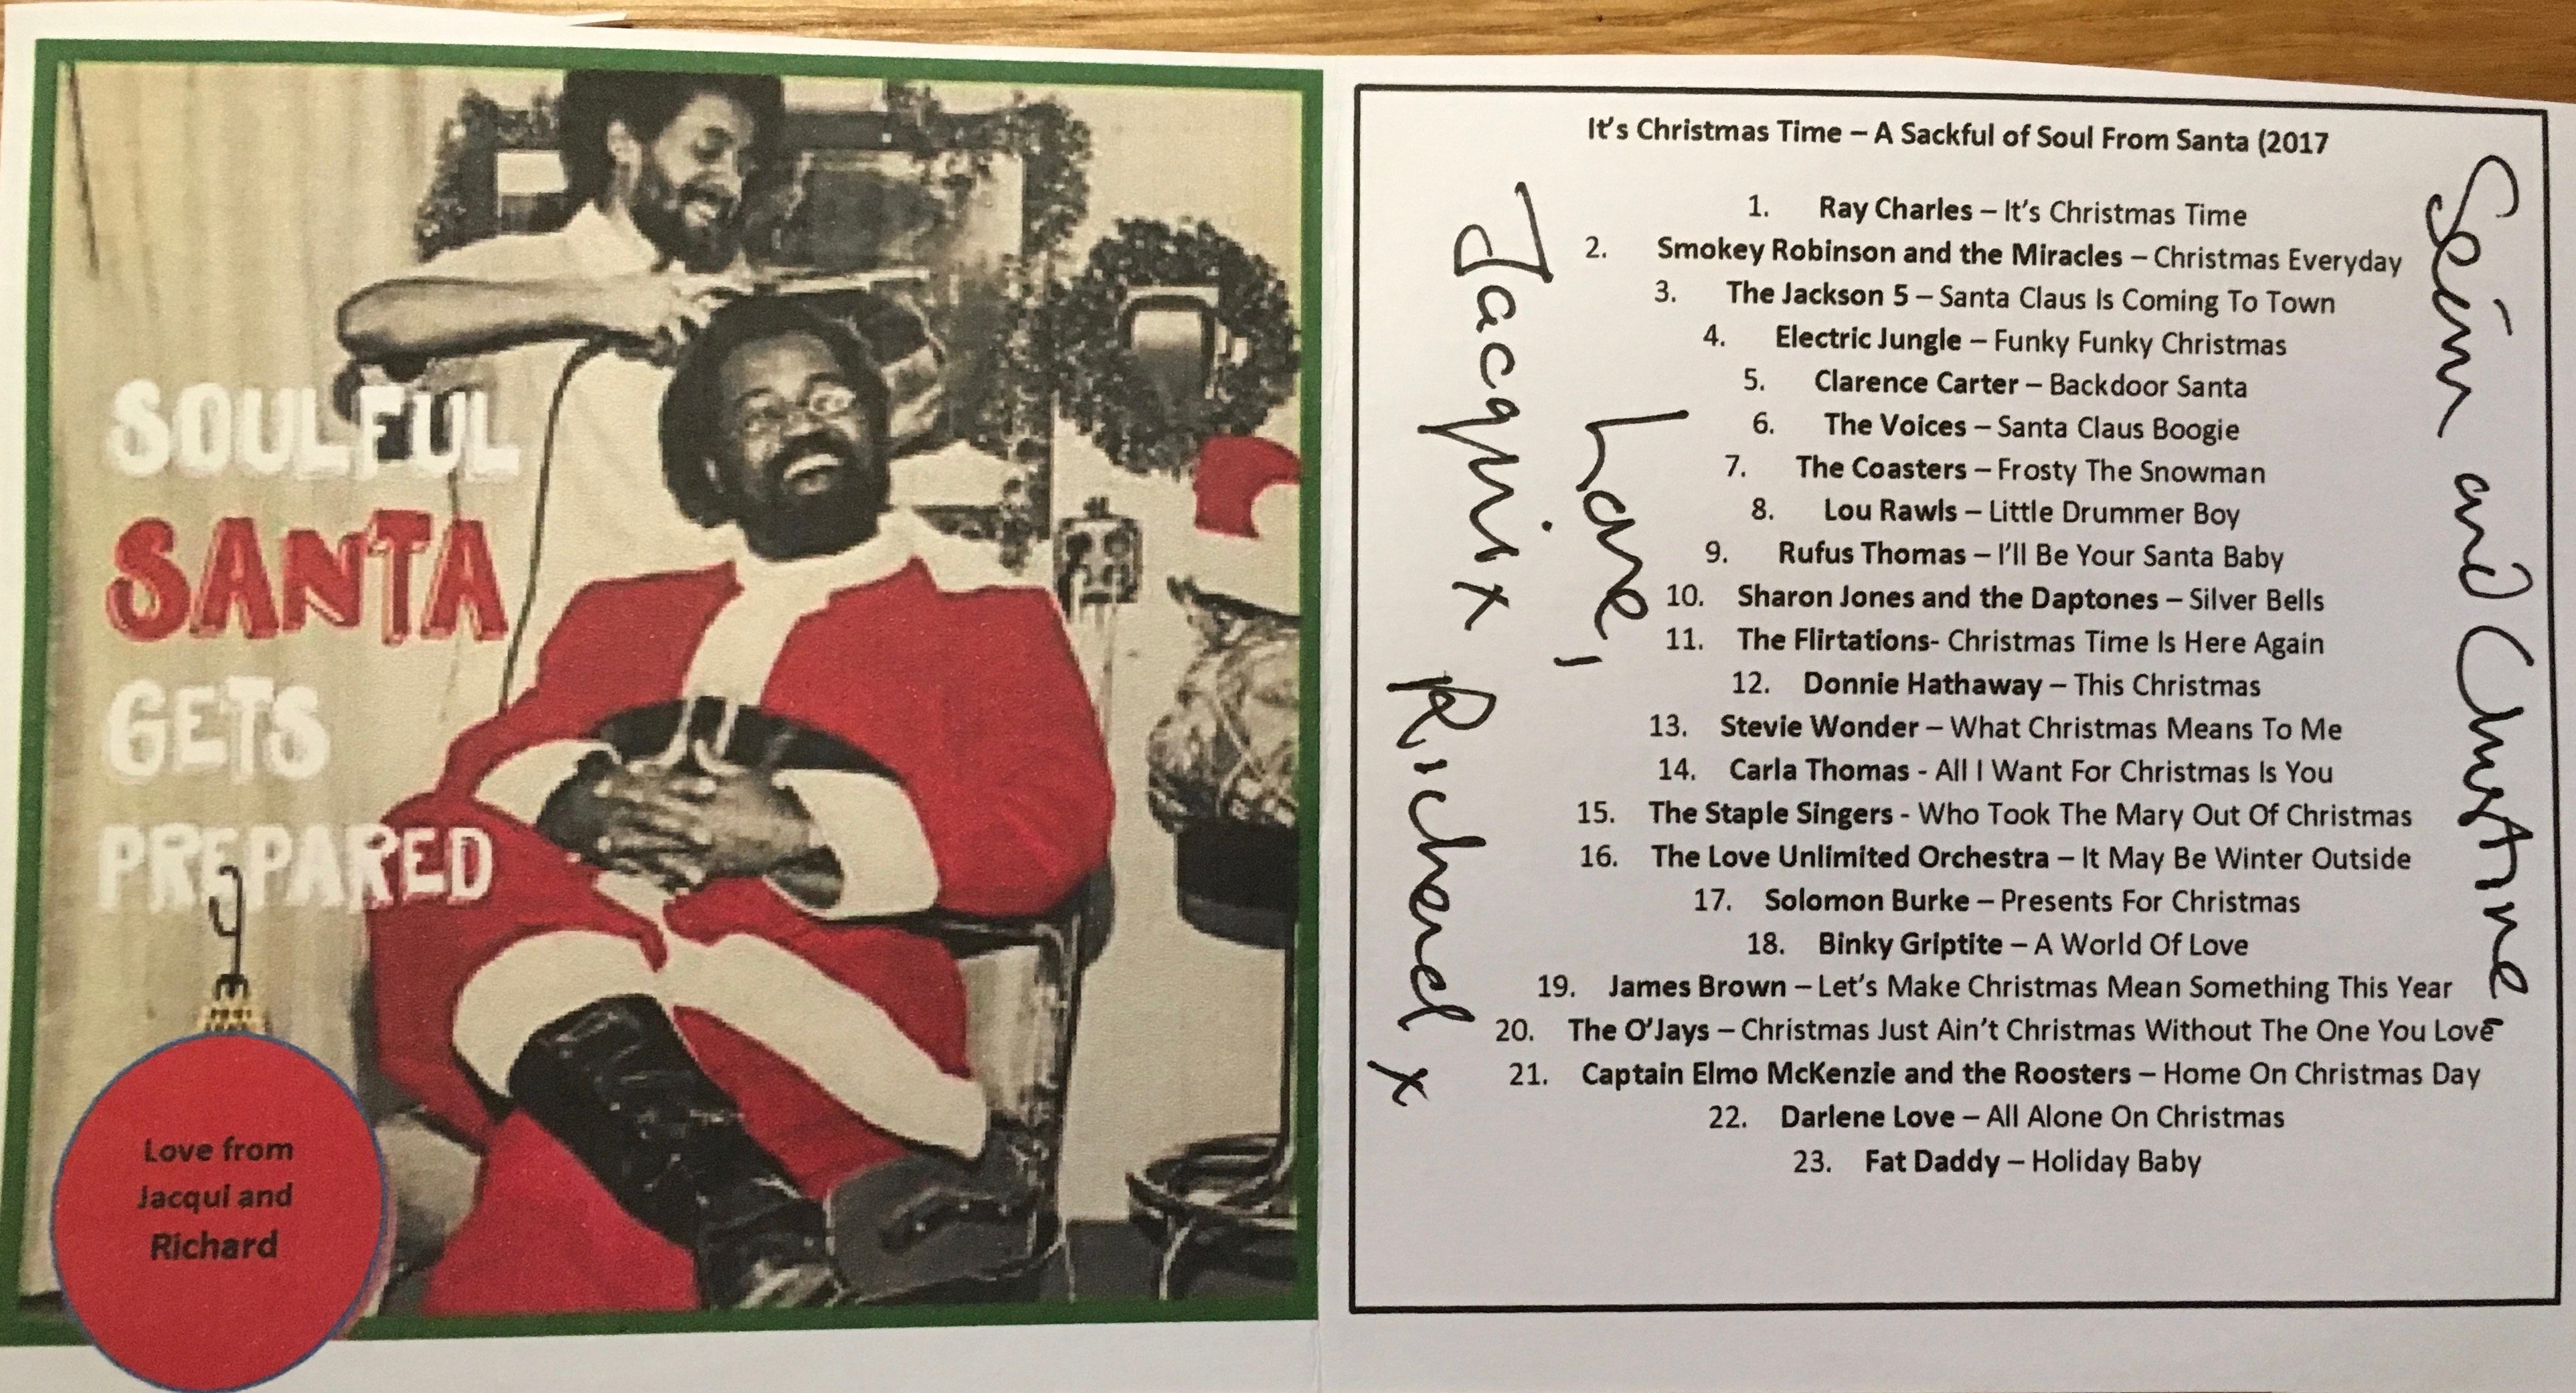 SOULFUL
SANTA
GETS
PREPARED
Love from
Jacqui and
Richard
It's Christmas Time – A Sackful of Soul From Santa (2017
1. Ray Charles – It's Christmas Time
2. Smokey Robinson and the Miracles – Christmas Everyday
3. The Jackson 5 – Santa Claus Is Coming To Town
4. Electric Jungle – Funky Funky Christmas
5. Clarence Carter – Backdoor Santa
6. The Voices – Santa Claus Boogie
7. The Coasters – Frosty The Snowman
8. Lou Rawls – Little Drummer Boy
9. Rufus Thomas – I'll Be Your Santa Baby
10. Sharon Jones and the Daptones – Silver Bells
11. The Flirtations- Christmas Time Is Here Again
12. Donnie Hathaway – This Christmas
13. Stevie Wonder – What Christmas Means To Me
14. Carla Thomas - All I Want For Christmas Is You
15. The Staple Singers - Who Took The Mary Out Of Christmas
16. The Love Unlimited Orchestra – It May Be Winter Outside
17. Solomon Burke – Presents For Christmas
18. Binky Griptite – A World Of Love
19. James Brown – Let's Make Christmas Mean Something This Year
20. The O'Jays – Christmas Just Ain't Christmas Without The One You Love
21. Captain Elmo McKenzie and the Roosters – Home On Christmas Day
22. Darlene Love – All Alone On Christmas
23. Fat Daddy – Holiday Baby
Seán and Christine
Love,
Jacqui x Richard x